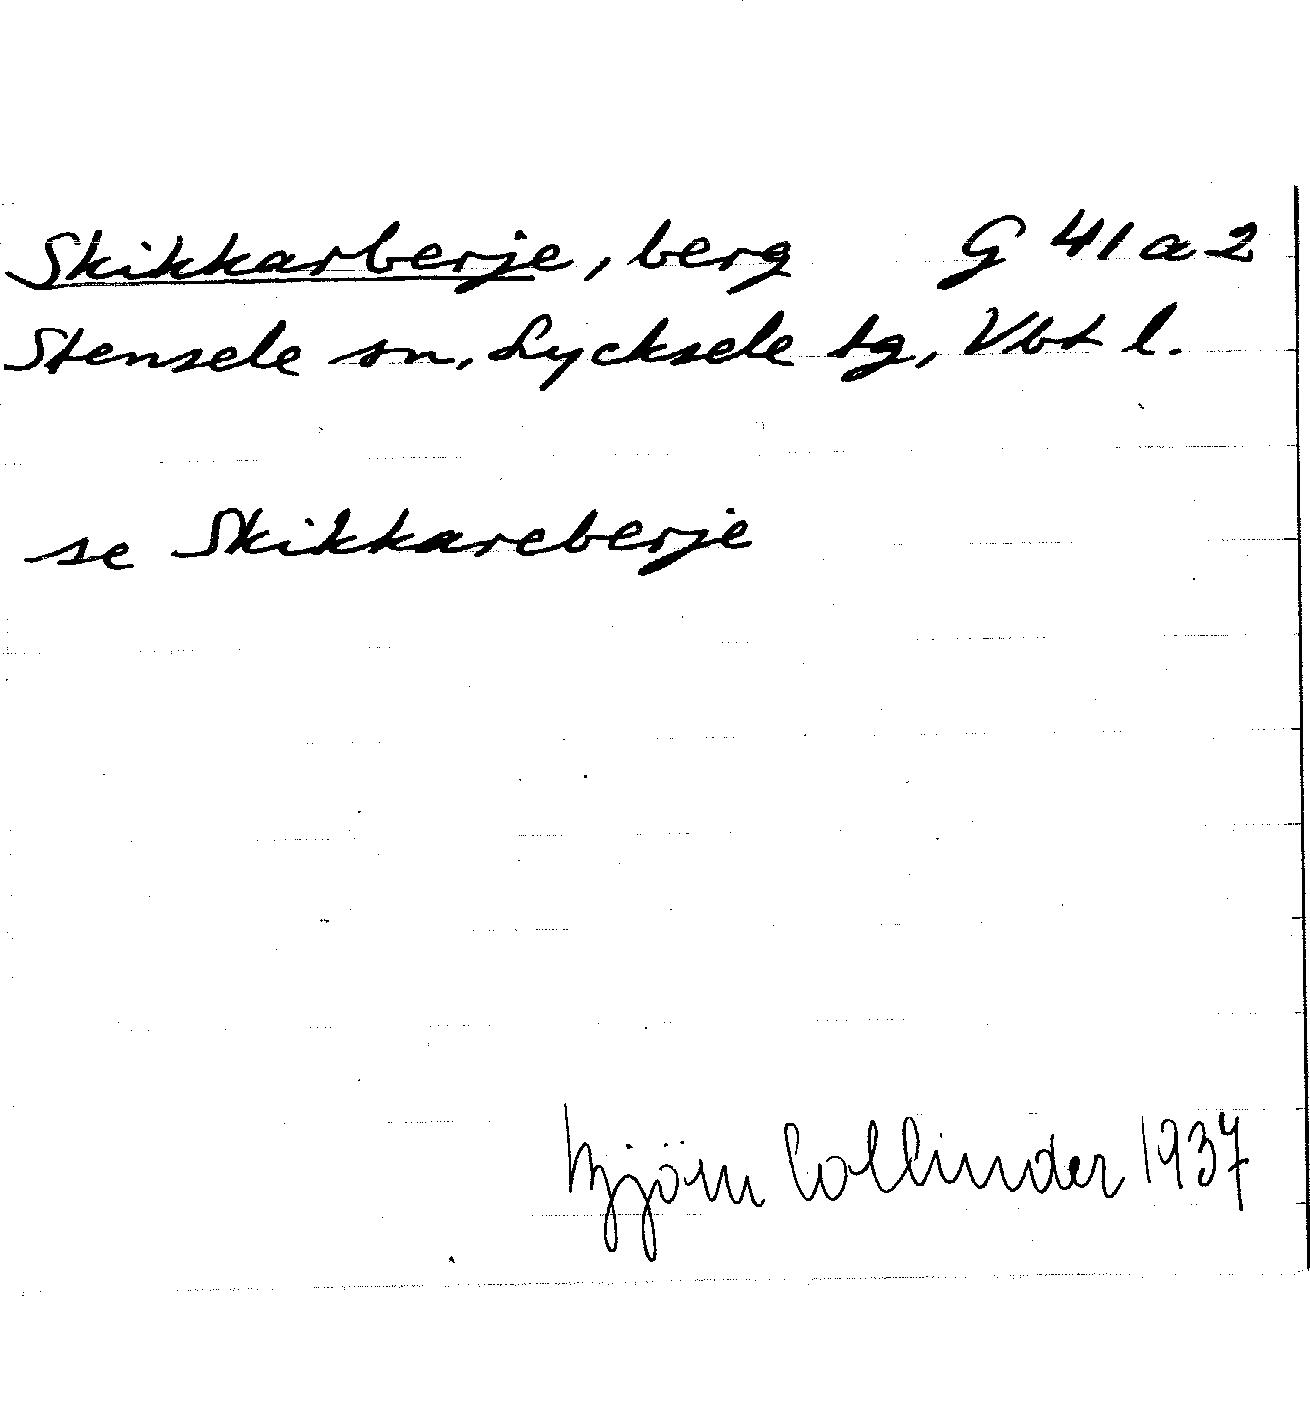 Skikkarberje, berg G 41 a 2
Stensele sn, Lycksele tg, Vbt l.
se Skikkareberje
Björn Collinder 1937